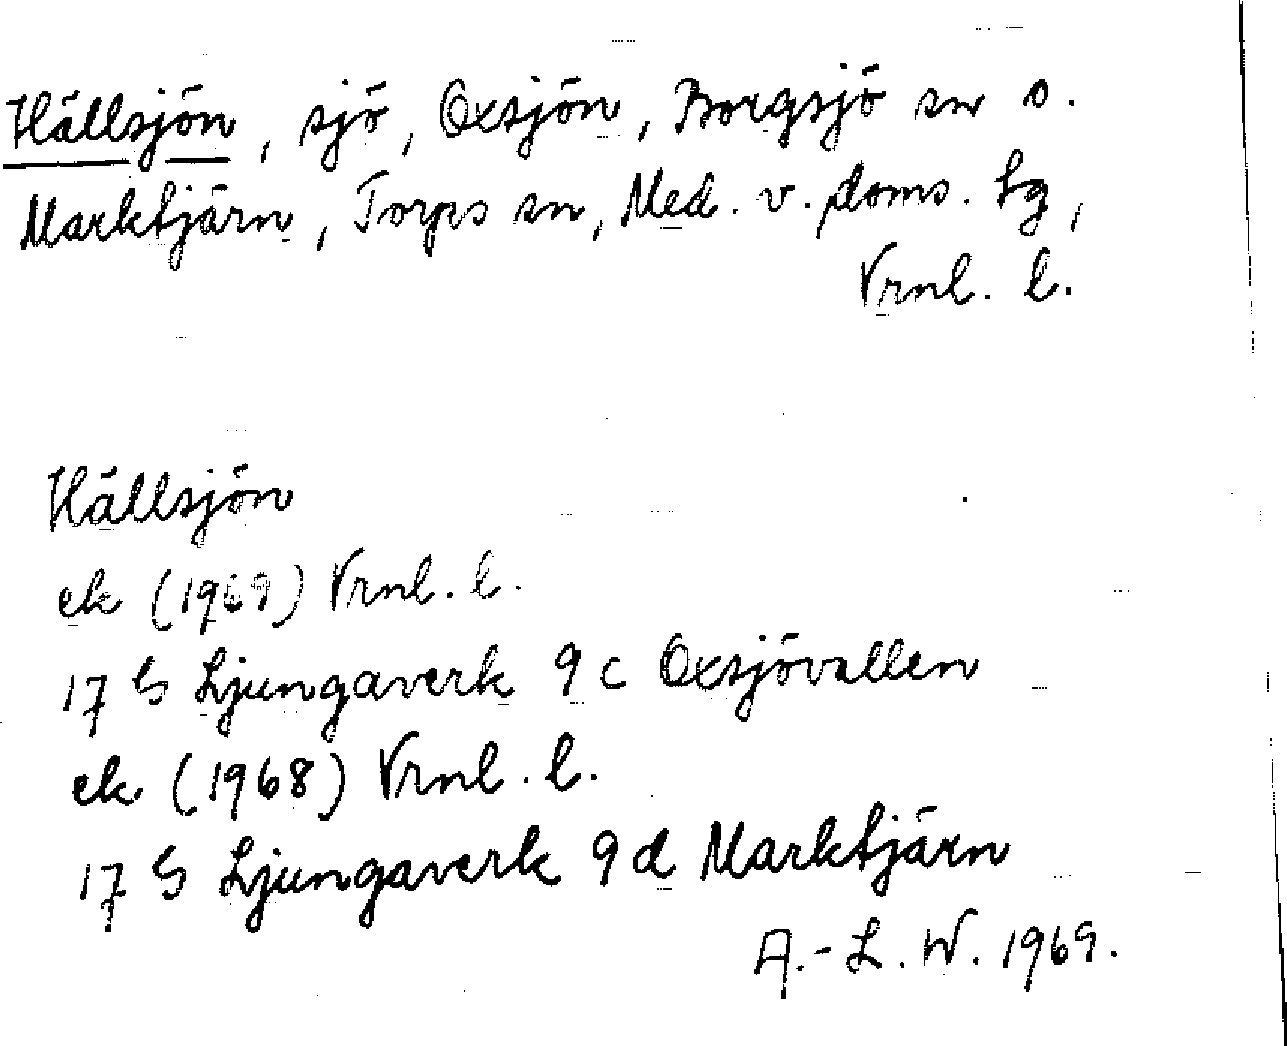 Hällsjön, sjö, Oxsjön, Borgsjö sn o.
Marktjärn, Torps sn, Med. v. doms. tg,
Vrnl. l.
Hällsjön
ek (1969) Vrnl. l.
17 G Ljungaverk 9 c Oxsjövallen
ek (1968) Vrnl. l.
17 G Ljungaverk 9 d Marktjärn
A.-L. W. 1969.